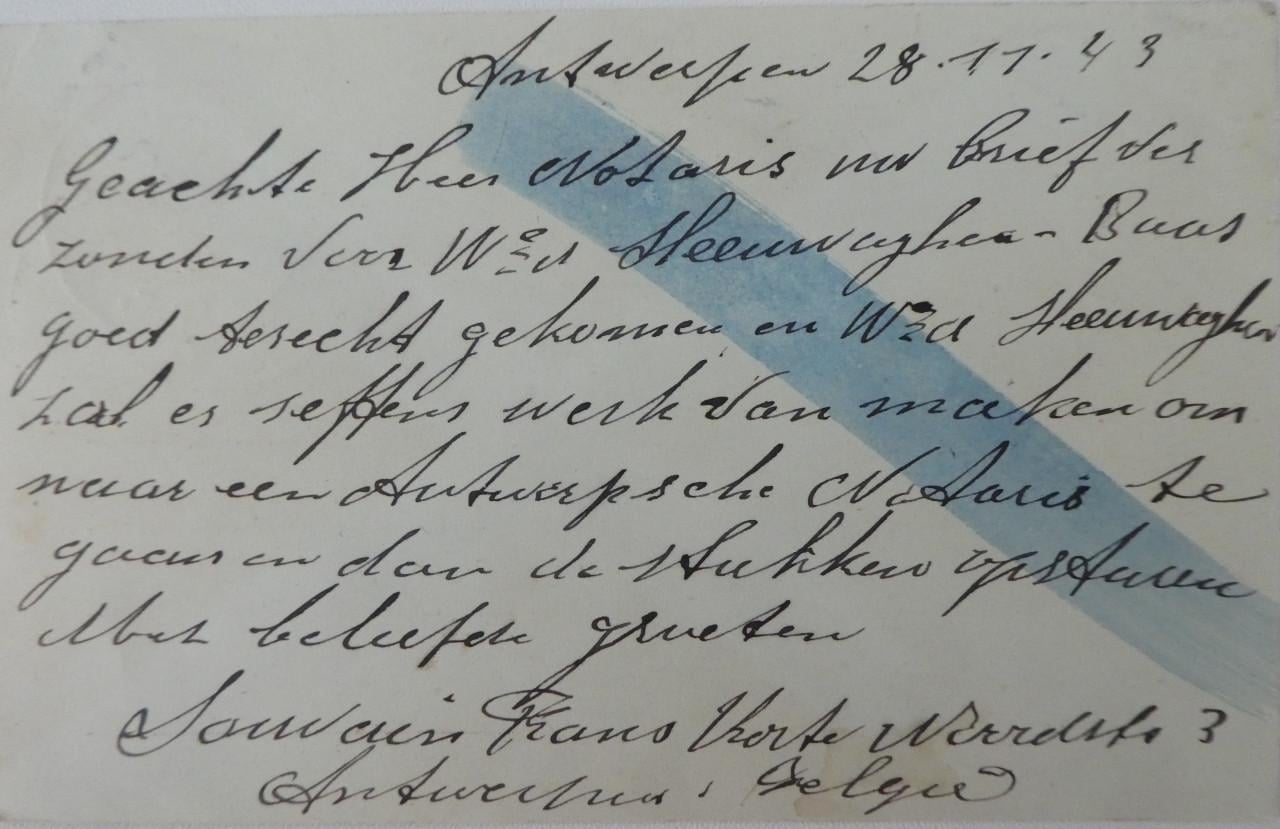 Antwerpen 28.11.43
Geachte Heer Notaris uw brief ver
zonden voor Wed Heeuwaghen - Baas
goed terecht gekomen en Wed Heeuwaghen
zal er seffens werk van maken om
naar een Antwerpsche Notaris te
gaan en dan de stukken opsturen
Met beleefde groeten
Louvain Frans Korte 3
Antwerpen België